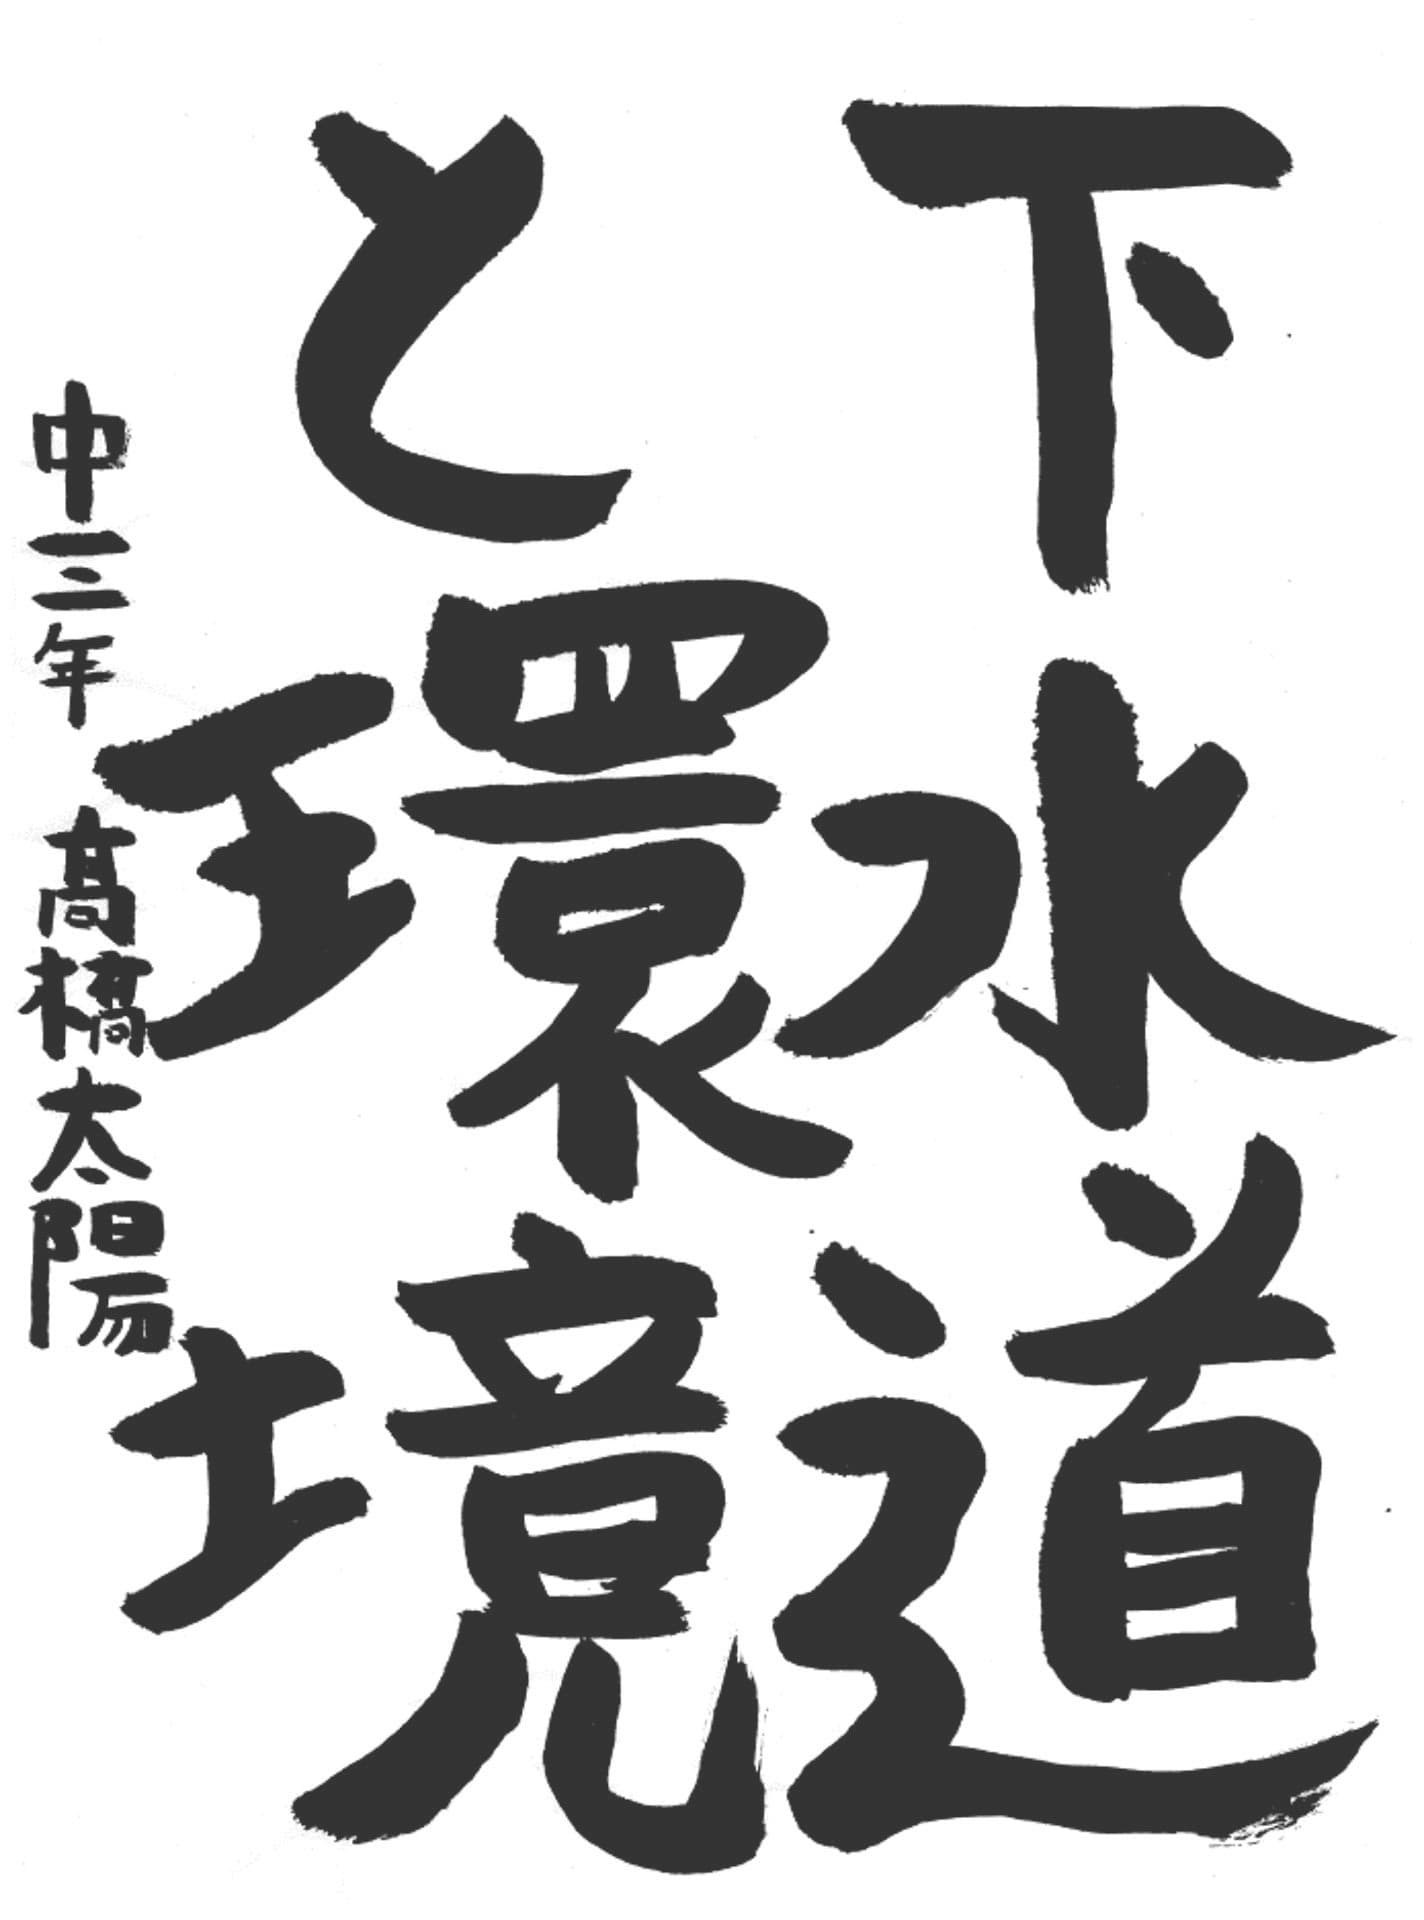 下水道
と環境
中三年 髙橋太陽